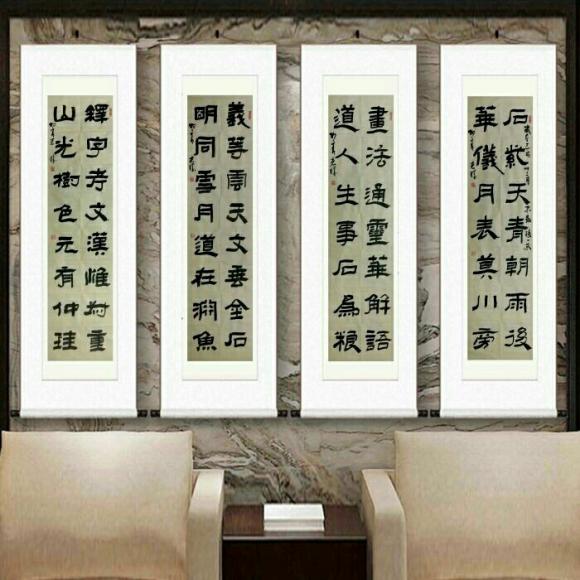 石紫天青朝雨後
華儀月表莫川旁
畫法通靈華解語
道人生事石為粮
義等雲天文垂金石
明同雪月道在渊魚
釋字考文漢惟叔重
山光樹色元有仲珪